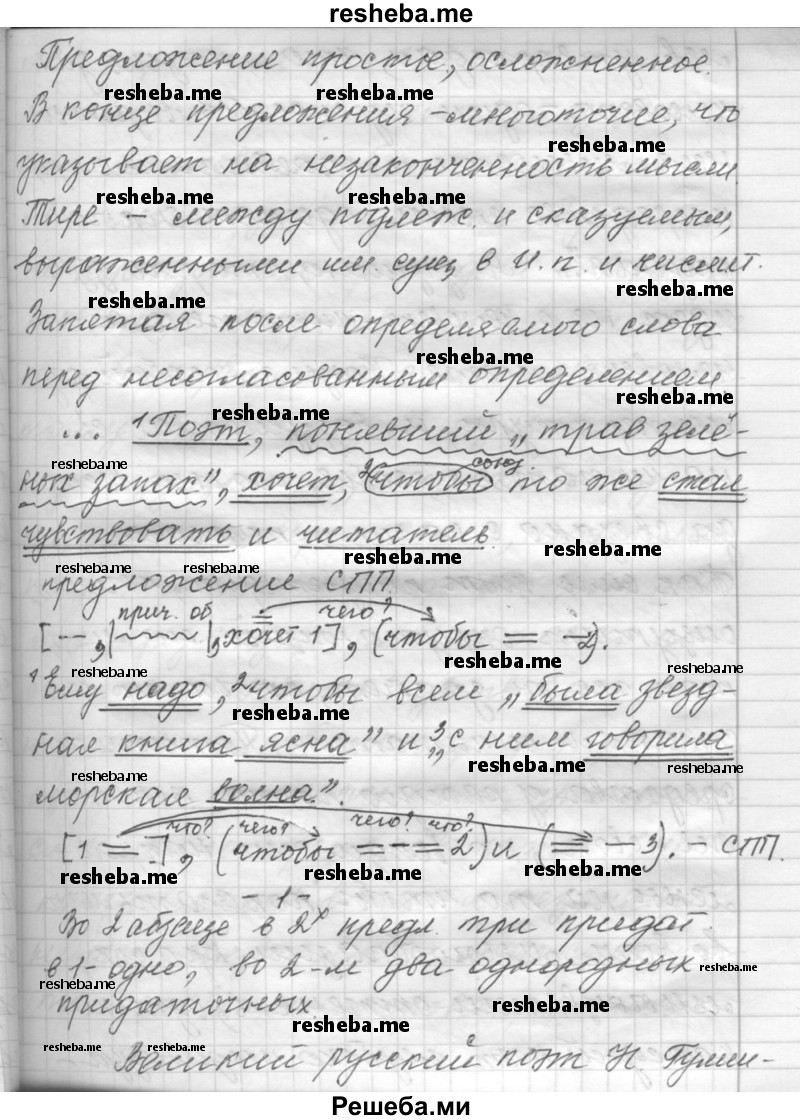 resheba.me
Предложение простое, осложненное.
resheba.me resheba.me
В конце предложения – многоточие, что
resheba.me
указывает на незаконченность мысли
resheba.me resheba.me
Тире – между подлеж. и сказуемым,
выраженными им. сущ в И.п. и числит.
resheba.me resheba.me
Запятая после определяемого слова
resheba.me
перед несогласованным определением
resheba.me resheba.me
... ¹Поэт, понявший „трав зелё-
resheba.me союз
ных запах”, хочет, ²чтобы то же стал
чувствовать и читатель.
resheba.me resheba.me
resheba.me resheba.me
предложение СПП
прич. об чего?
[–,|~~~|, хочет 1], (чтобы = – 2).
resheba.me resheba.me
¹Ему надо, ²чтобы всем „была звезд-
resheba.me resheba.me
ная книга ясна” и ³„с ним говорила
resheba.me resheba.me resheba.me
морская волна”.
что? чего? чего? что?
[1 =], (чтобы = – = 2) и (= – 3). – СПП.
resheba.me resheba.me resheba.me
– 1 –
Во 2 абзаце в 2х предл. три придат.
в 1 – одно, во 2-м два однородных
resheba.me resheba.me
придаточных.
resheba.me resheba.me
resheba.me resheba.me
Великий русский поэт Н. Гуми-
Решеба.ми